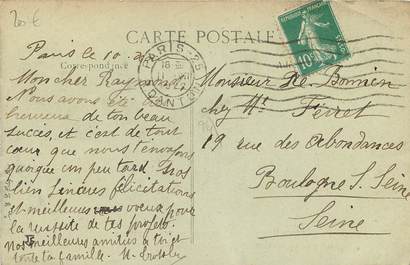 20 €
CARTE POSTALE
Correspondance
Paris le 10
Mon cher Raymond
Nous avons été
heureux de ton beau
succès, et c'est de tout
cœur que nous t'envoyons
quoique un peu tard nos
bien sincères félicitations
et meilleures voeux pour
la réussite de tes projets.
Nos meilleures amitiés à toi et
toute ta famille.
PARIS - 25
DANTON
REPUBLIQUE FRANÇAISE
10
Monsieur De
chez Mr Ferret
19 rue des Abondances
Boulogne s. Seine
Seine